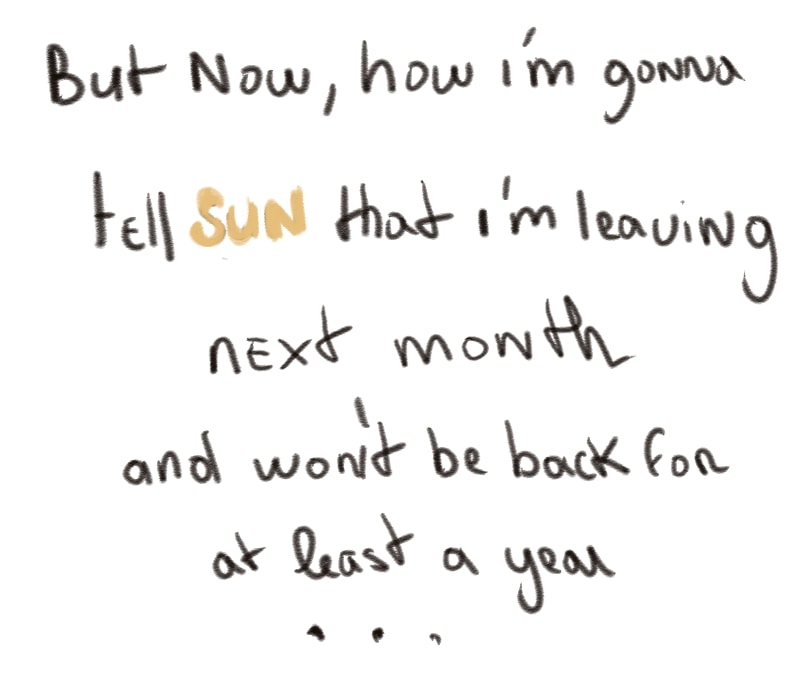 But Now, how i'm gonna
tell SUN that i'm leaving
next month
and won't be back for
at least a year
...